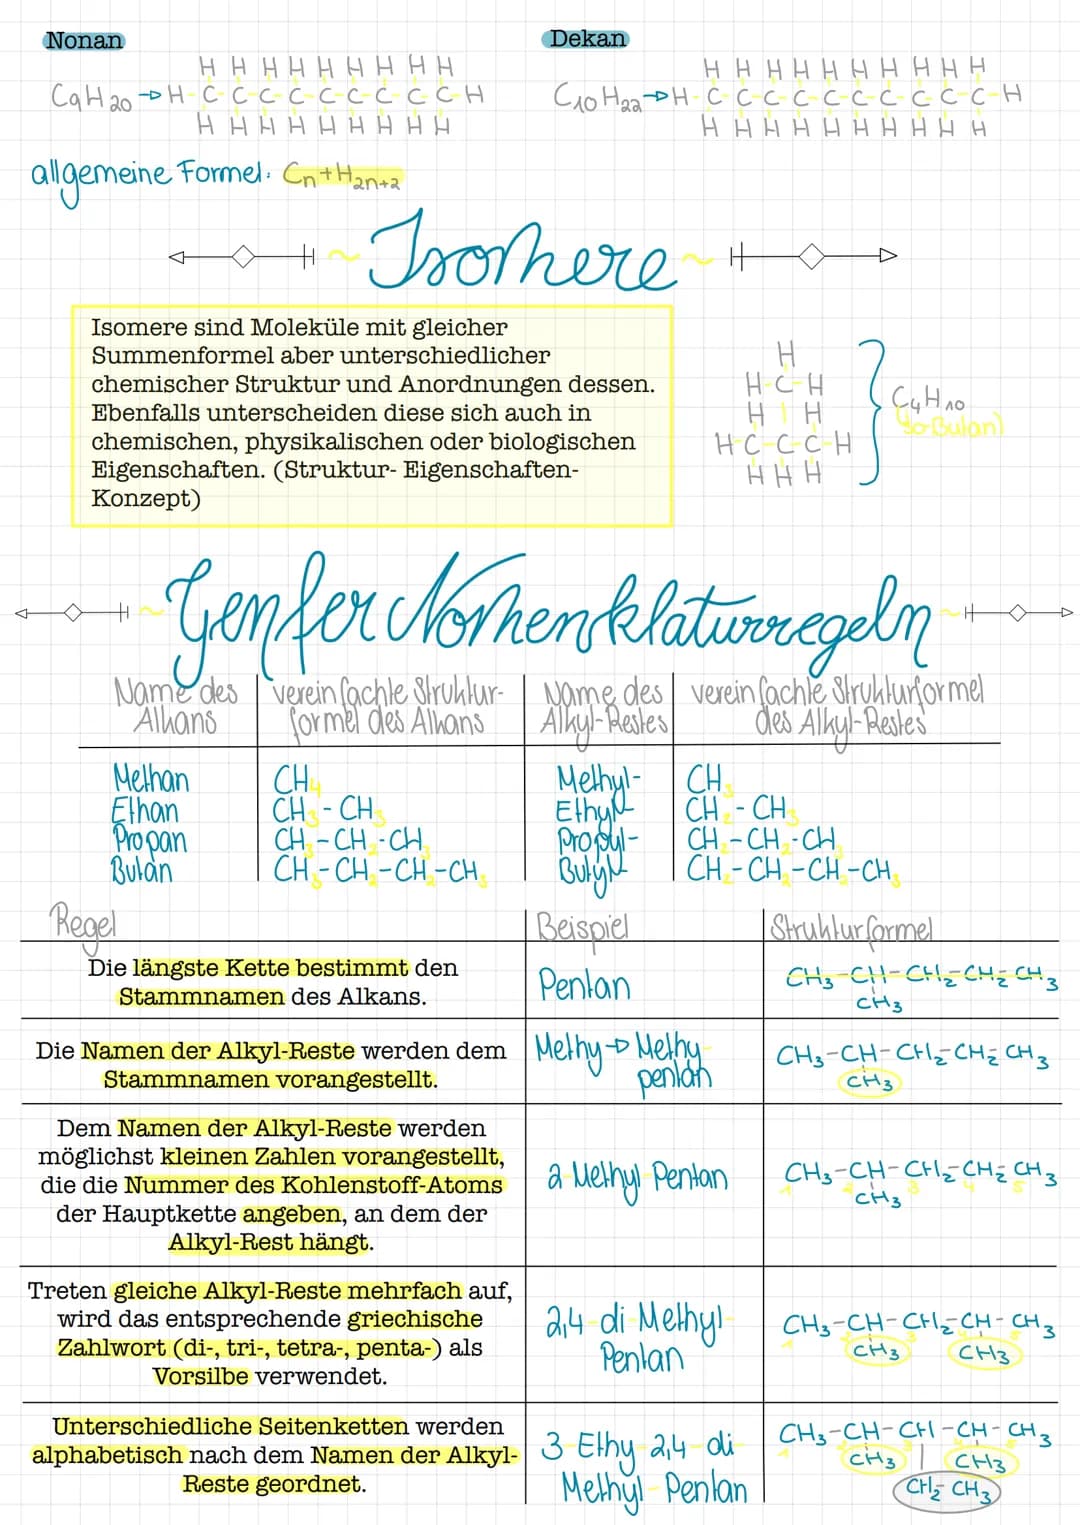 Nonan
Dekan
H H H H H H H H H
C9H20 → H-C-C-C-C-C-C-C-C-C-H
H H H H H H H H H
H H H H H H H H H H
C10H22 → H-C-C-C-C-C-C-C-C-C-C-H
H H H H H H H H H H
allgemeine Formel: Cn+H2n+2
Isomere
Isomere sind Moleküle mit gleicher
Summenformel aber unterschiedlicher
chemischer Struktur und Anordnungen dessen.
Ebenfalls unterscheiden diese sich auch in
chemischen, physikalischen oder biologischen
Eigenschaften. (Struktur- Eigenschaften-
Konzept)
H
H-C-H
H | H
H-C-C-C-H
H H H
C4H10
Genfer Nomenklaturregeln
Name des Alkans
vereinfachte Struktur-
formel des Alkans
Name des
Alkyl-Restes
vereinfachte Strukturformel
des Alkyl-Restes
Methan CH4 Methyl- CH3
Ethan CH3-CH3 Ethyl- CH2-CH3
Propan CH3-CH2-CH3 Propyl- CH2-CH2-CH3
Butan CH3-CH2-CH2-CH3 Butyl- CH2-CH2-CH2-CH3
Regel Beispiel Strukturformel
Die längste Kette bestimmt den
Stammnamen des Alkans.
Pentan
CH3-CH-CH2-CH2-CH3
CH3
Die Namen der Alkyl-Reste werden dem
Stammnamen vorangestellt.
Methy→Methy-
pentan
CH3-CH-CH2-CH2-CH3
CH3
Dem Namen der Alkyl-Reste werden
möglichst kleinen Zahlen vorangestellt,
die die Nummer des Kohlenstoff-Atoms
der Hauptkette angeben, an dem der
Alkyl-Rest hängt.
2-Methyl-Pentan
CH3-CH-CH2-CH2-CH3
1 2 3 4 5
CH3
Treten gleiche Alkyl-Reste mehrfach auf,
wird das entsprechende griechische
Zahlwort (di-, tri-, tetra-, penta-) als
Vorsilbe verwendet.
2,4-di-Methyl-
Pentan
CH3-CH-CH2-CH-CH3
1 2 3 4 5
CH3 CH3
Unterschiedliche Seitenketten werden
alphabetisch nach dem Namen der Alkyl-
Reste geordnet.
3-Ethy-2,4-di-
Methyl-Pentan
CH3-CH-CH-CH-CH3
CH3 | CH3
CH2-CH3